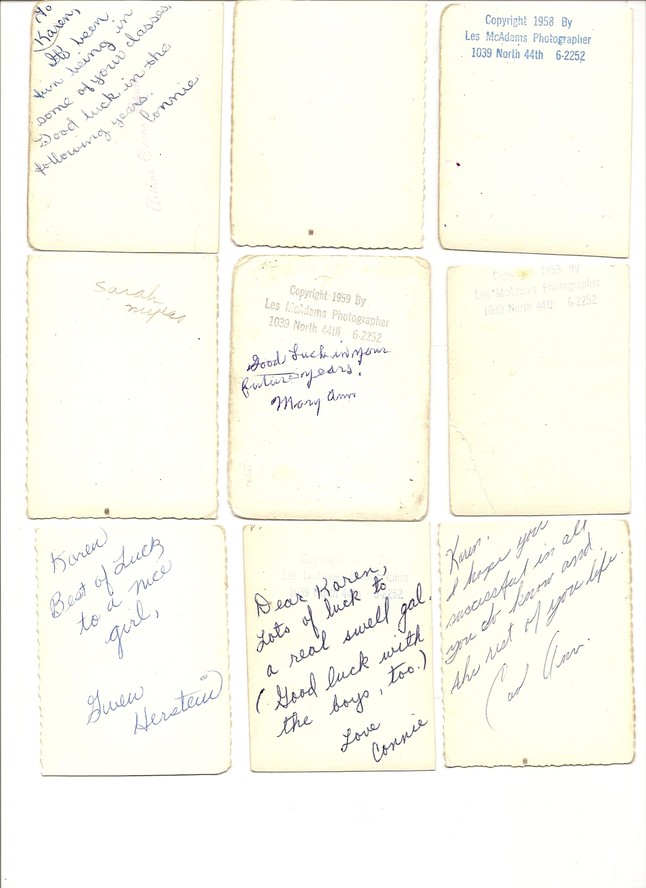 To
Karen,
It's been
fun being in
some of your classes.
Good luck in the
following years.
Connie
Copyright 1958 By
Les McAdams Photographer
1039 North 44th 6-2252
Sarah
Copyright 1959 By
Les McAdams Photographer
1039 North 44th 6-2252
Good Luck in your
future years!
Mary Ann
By
Les McAdams Photographer
1039 North 44th 6-2252
Karen
Best of Luck
to a nice
girl,
Gwen
Herstein
Dear Karen,
Lots of luck to
a real swell gal.
(Good luck with
the boys, too.)
Love
Connie
Karen,
I hope your
successful in all
you do know and
the rest of you life.
Ann.